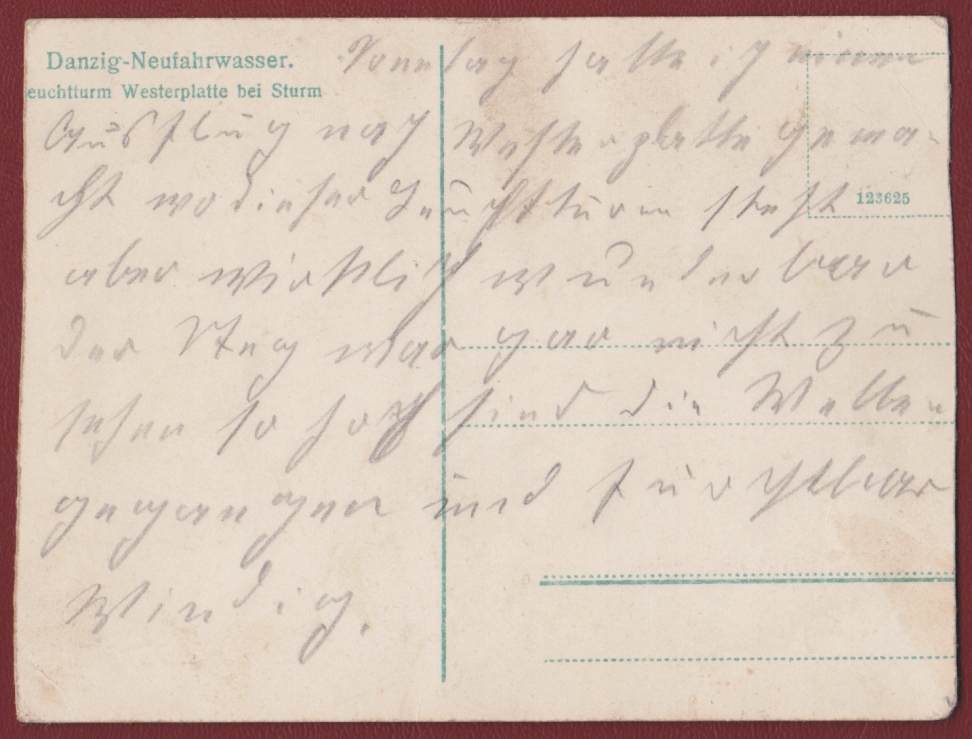 Danzig-Neufahrwasser.
euchtturm Westerplatte bei Sturm
123625
Sonntag hatte ich einen
Ausflug nach Westerplatte gema-
cht wo dieser Leuchtturm steht
aber wirklich wunderbar
der Steg war gar nicht zu
sehen so hoch sind die Wellen
gegangen und furchtbar
Windig.